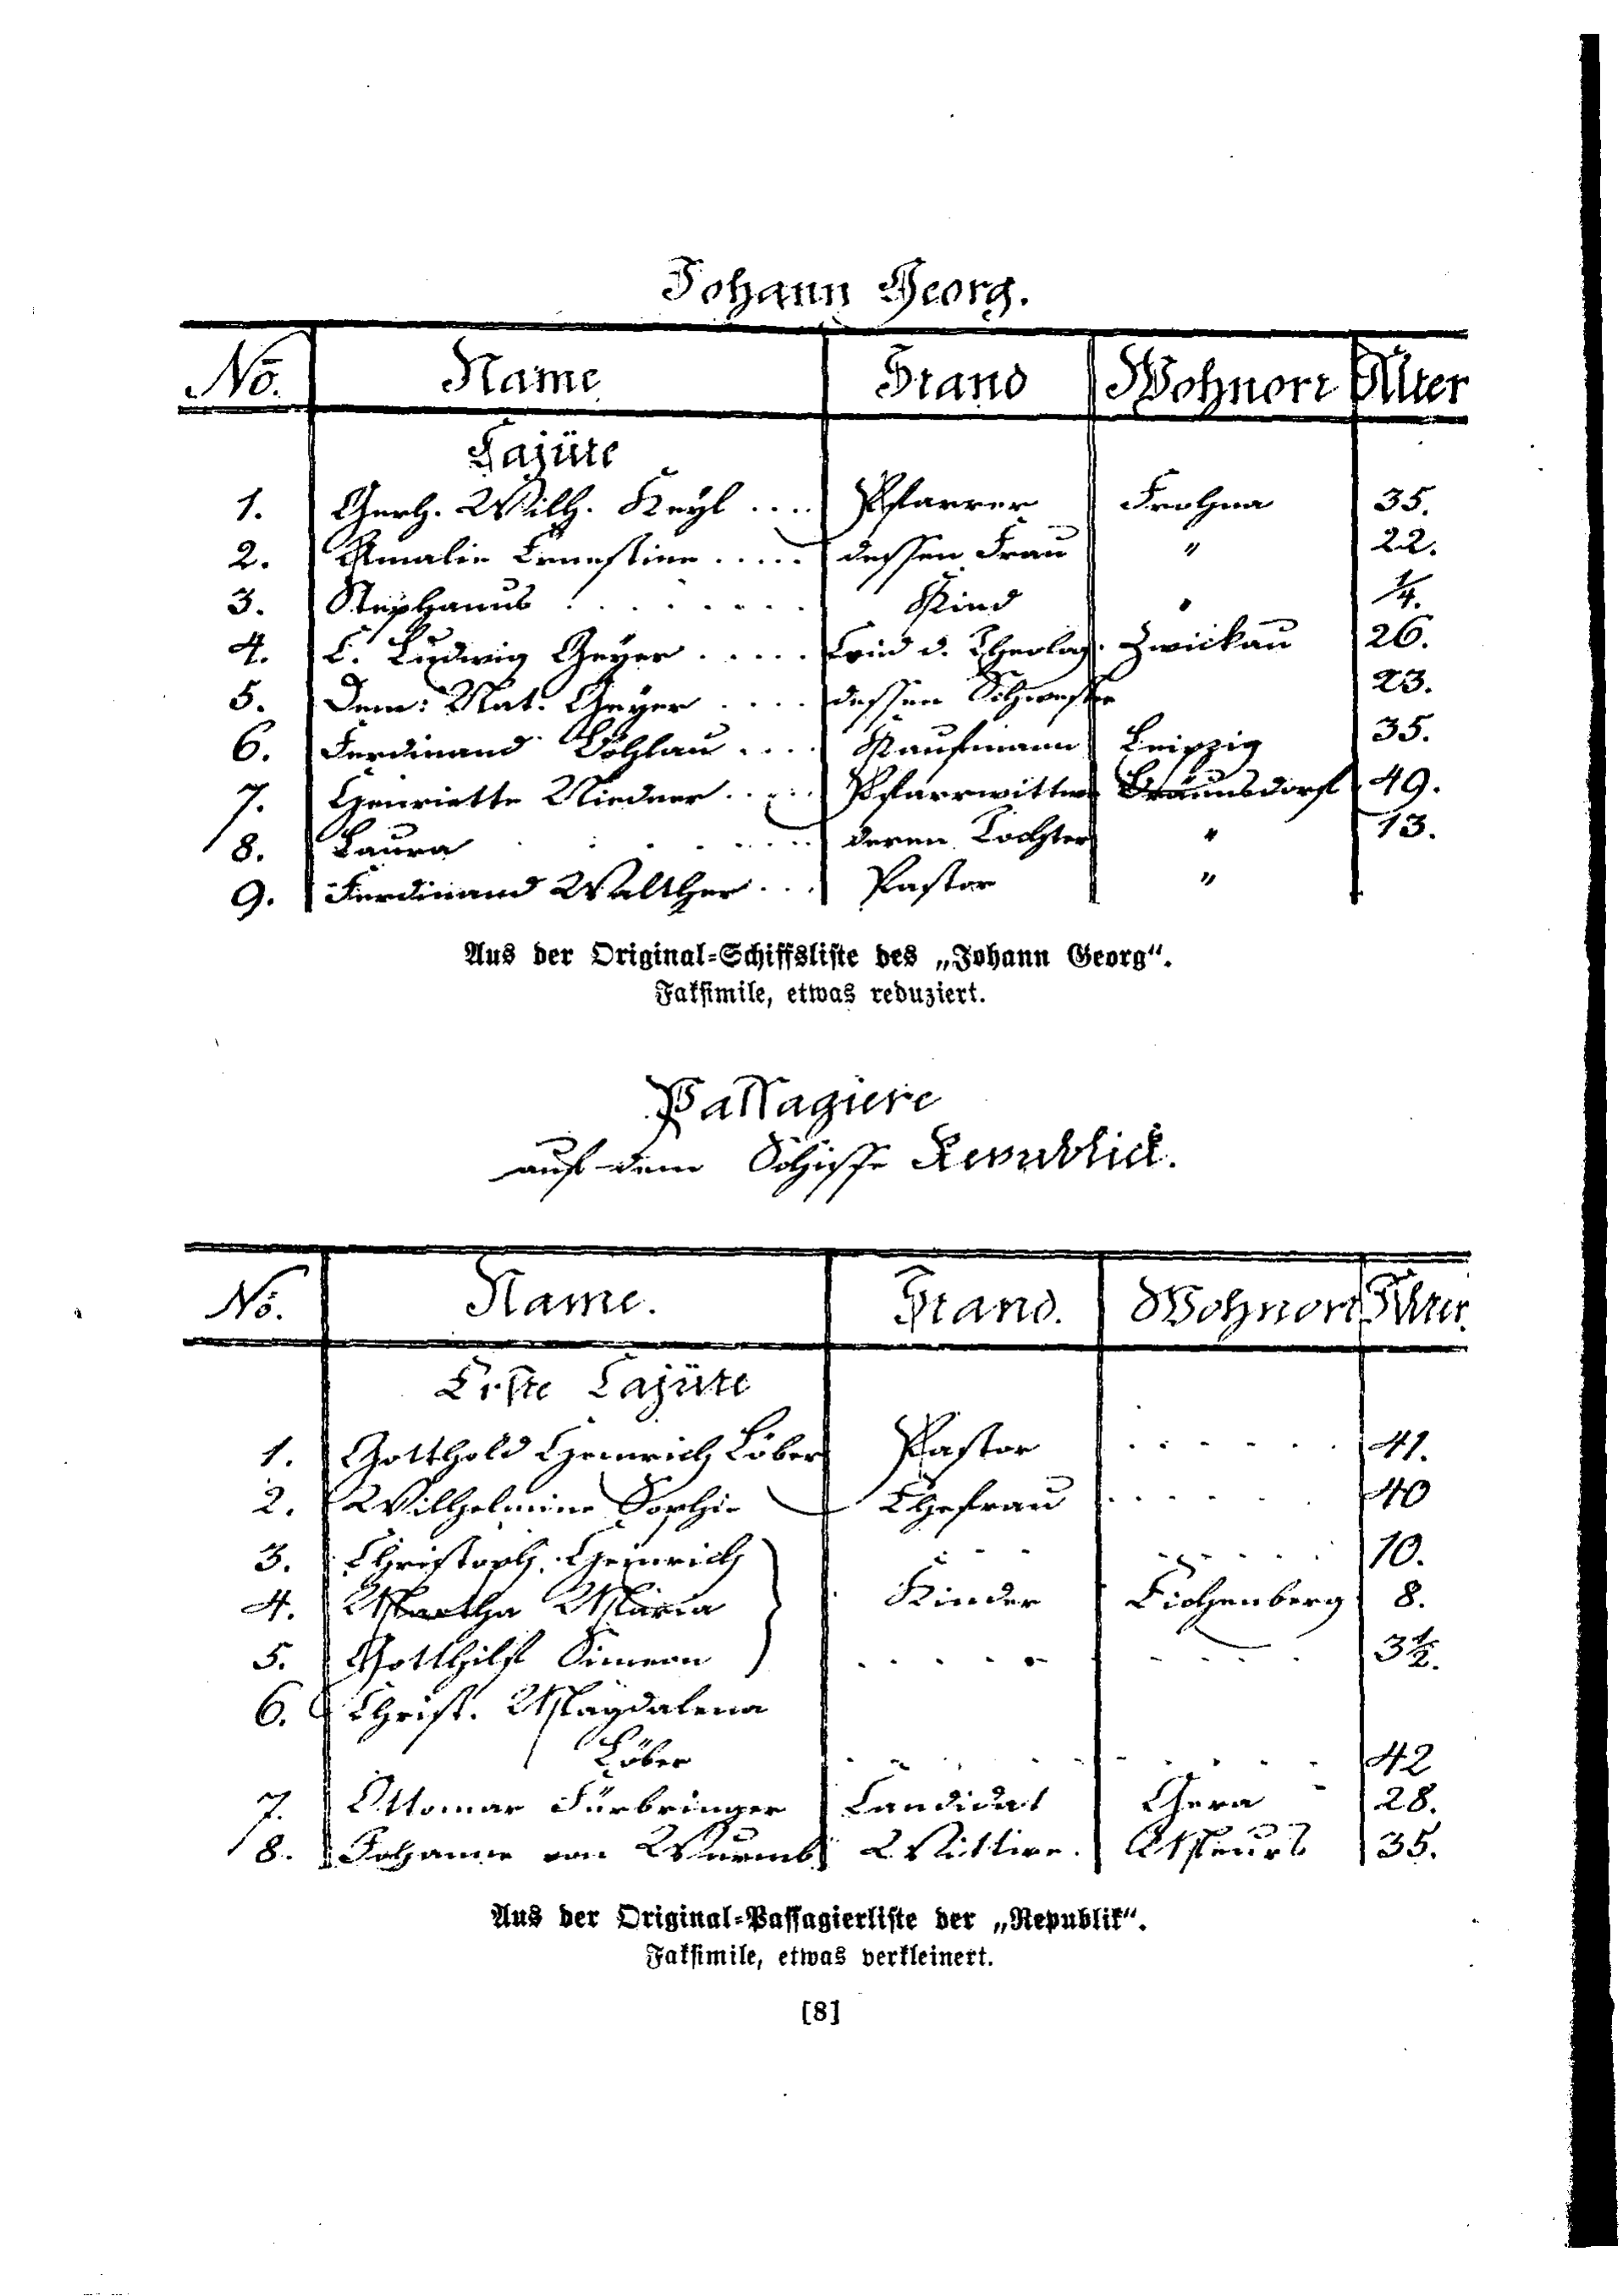 Johann Georg.
No. Name Stand Wohnort Alter
Cajüte
1. Gerh. Wilh. Keyl .... Pfarrer Frohna 35.
2. Amalie Ernestine ..... dessen Frau " 22.
3. Stephanus ........ Kind " 1/4.
4. C. Ludwig Geyer ..... Cand d. Theolog. Zwickau 26.
5. Dem: Nat. Geyer .... dessen Schwester 23.
6. Ferdinand .... Kaufmann Leipzig 35.
7. Henriette Niedner ..... Pfarrwittwe Bräunsdorf 49.
8. Laura ....... deren Tochter " 13.
9. Ferdinand Walther ... Pastor "
Aus der Original-Schiffsliste des „Johann Georg“.
Faksimile, etwas reduziert.
Passagiere
auf dem Schiffe Republick.
No. Name. Stand. Wohnort Alter.
Erste Cajüte
1. Gotthold Heinrich Löber Pastor ...... 41.
2. Wilhelmine Sophie Ehefrau ...... 40
3. Christoph. Heinrich ... ...... 10.
4. Martha Maria Kinder Eichenberg 8.
5. Gotthilf Simeon ..... .... 3 1/2.
6. Christ. Magdalena
Löber ..... ..... 42
7. Ottomar Fürbringer Candidat Gera 28.
8. Johanne von Wurmb Wittwe. 35.
Aus der Original-Passagierliste der „Republik“.
Faksimile, etwas verkleinert.
[8]